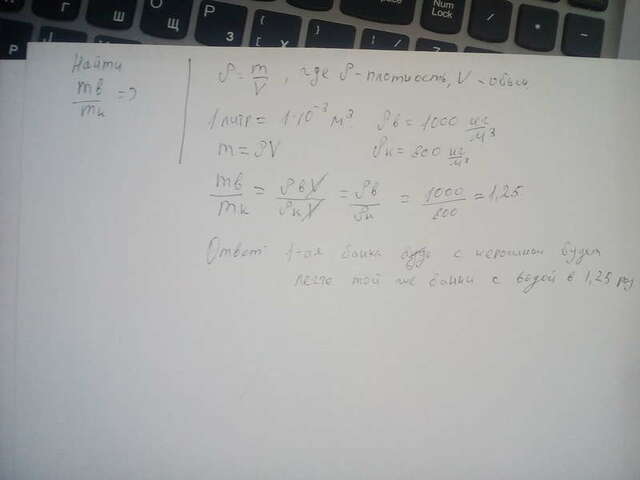 Г
Ш
Щ
О
Р
Р
З
{
[
}
]
Num
Lock
/
*
-
Найти
mв/mк = ?
ρ = m/V, где ρ - плотность, V - объём
1 литр = 1·10⁻³ м³ ρв = 1000 кг/м³
m = ρV ρк = 800 кг/м³
mв/mк = ρвV/ρкV = ρв/ρк = 1000/800 = 1,25
Ответ: 1-ая банка с керосином будет
легче той же банки с водой в 1,25 раз